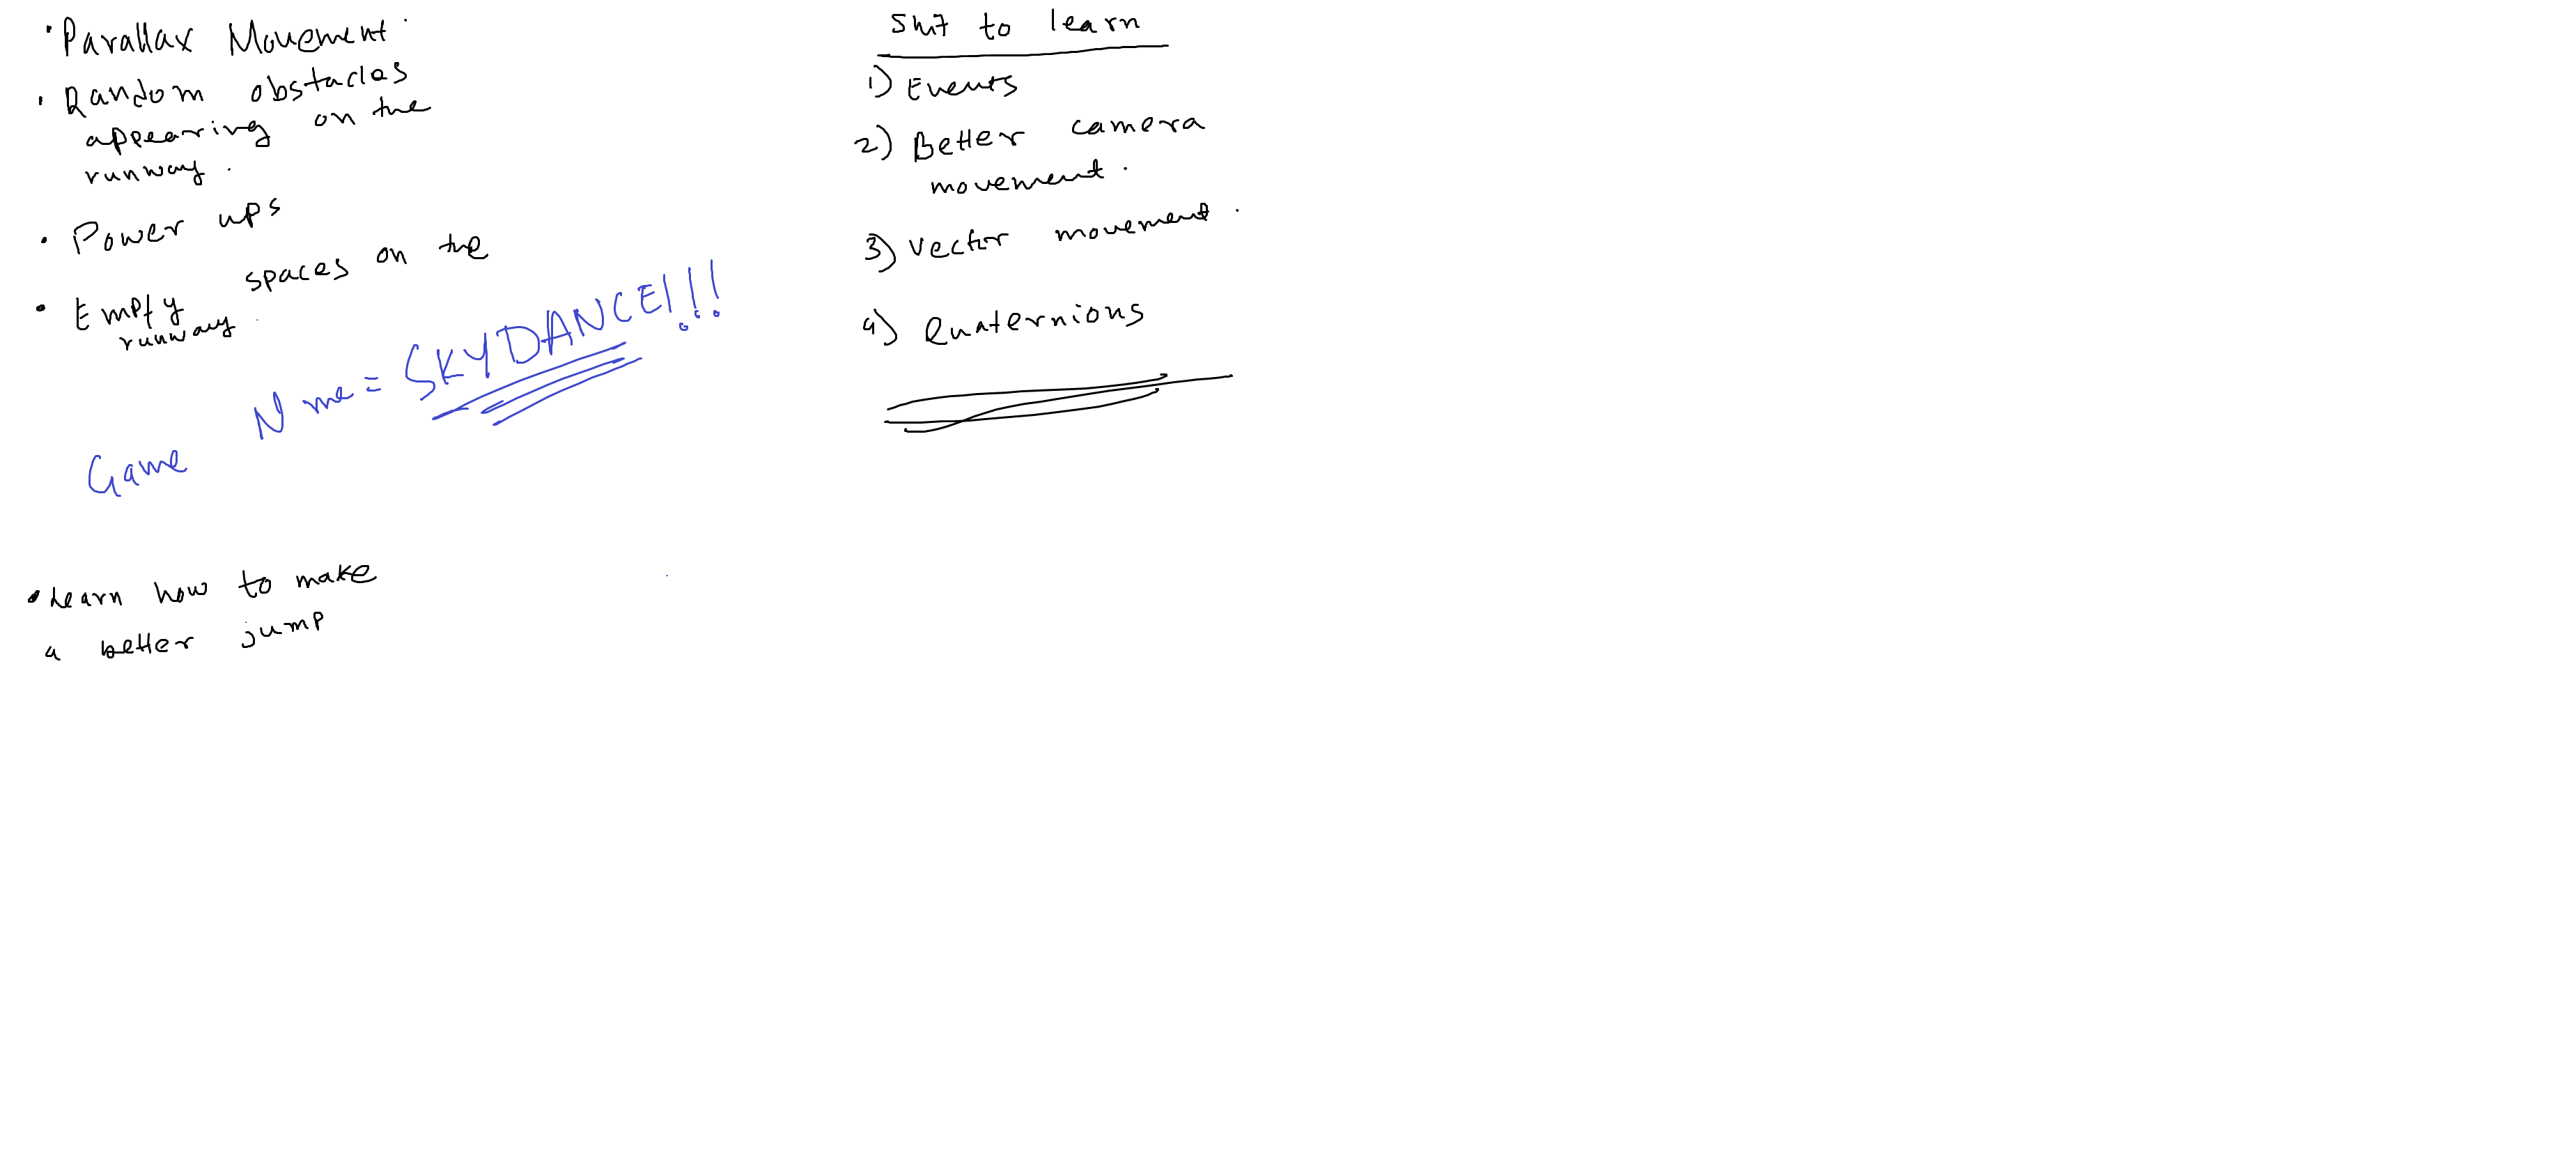 • Parallax Movement.
• Random obstacles
appearing on the
runway.
• Power ups
• Empty spaces on the
runway.
Game Nme = SKYDANCE!!!
• Learn how to make
a better jump
Shit to learn
1) Events
2) Better camera
movement.
3) Vector movement.
4) Quaternions